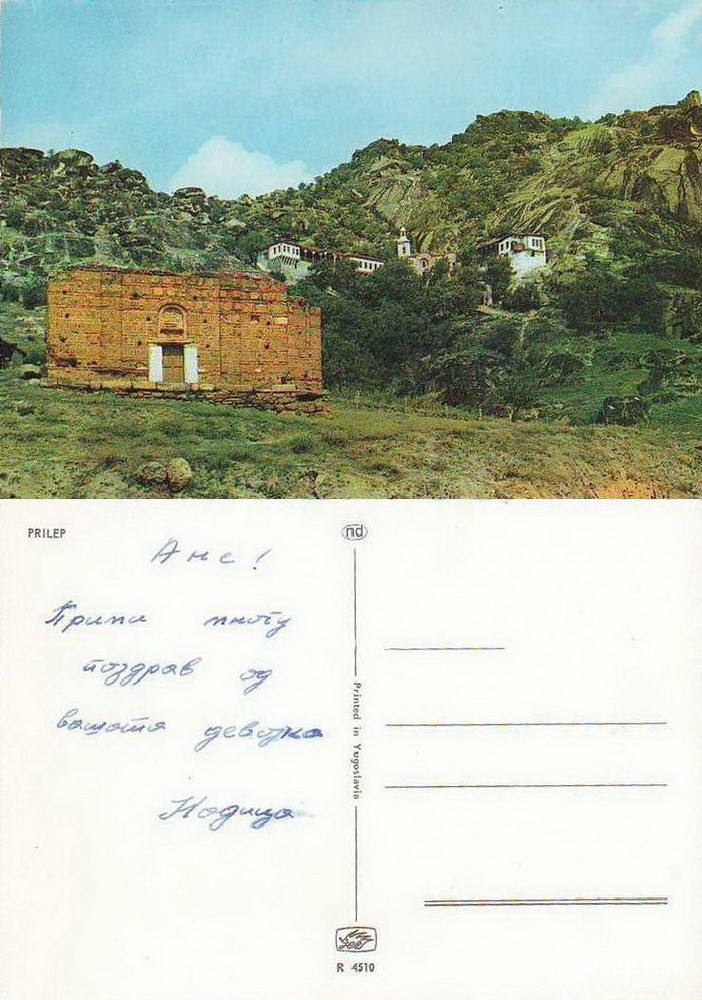 PRILEP
nd
Анс!
Прими многу
поздрав од
вашата девојка
Надица
Printed in Yugoslavia
R 4510